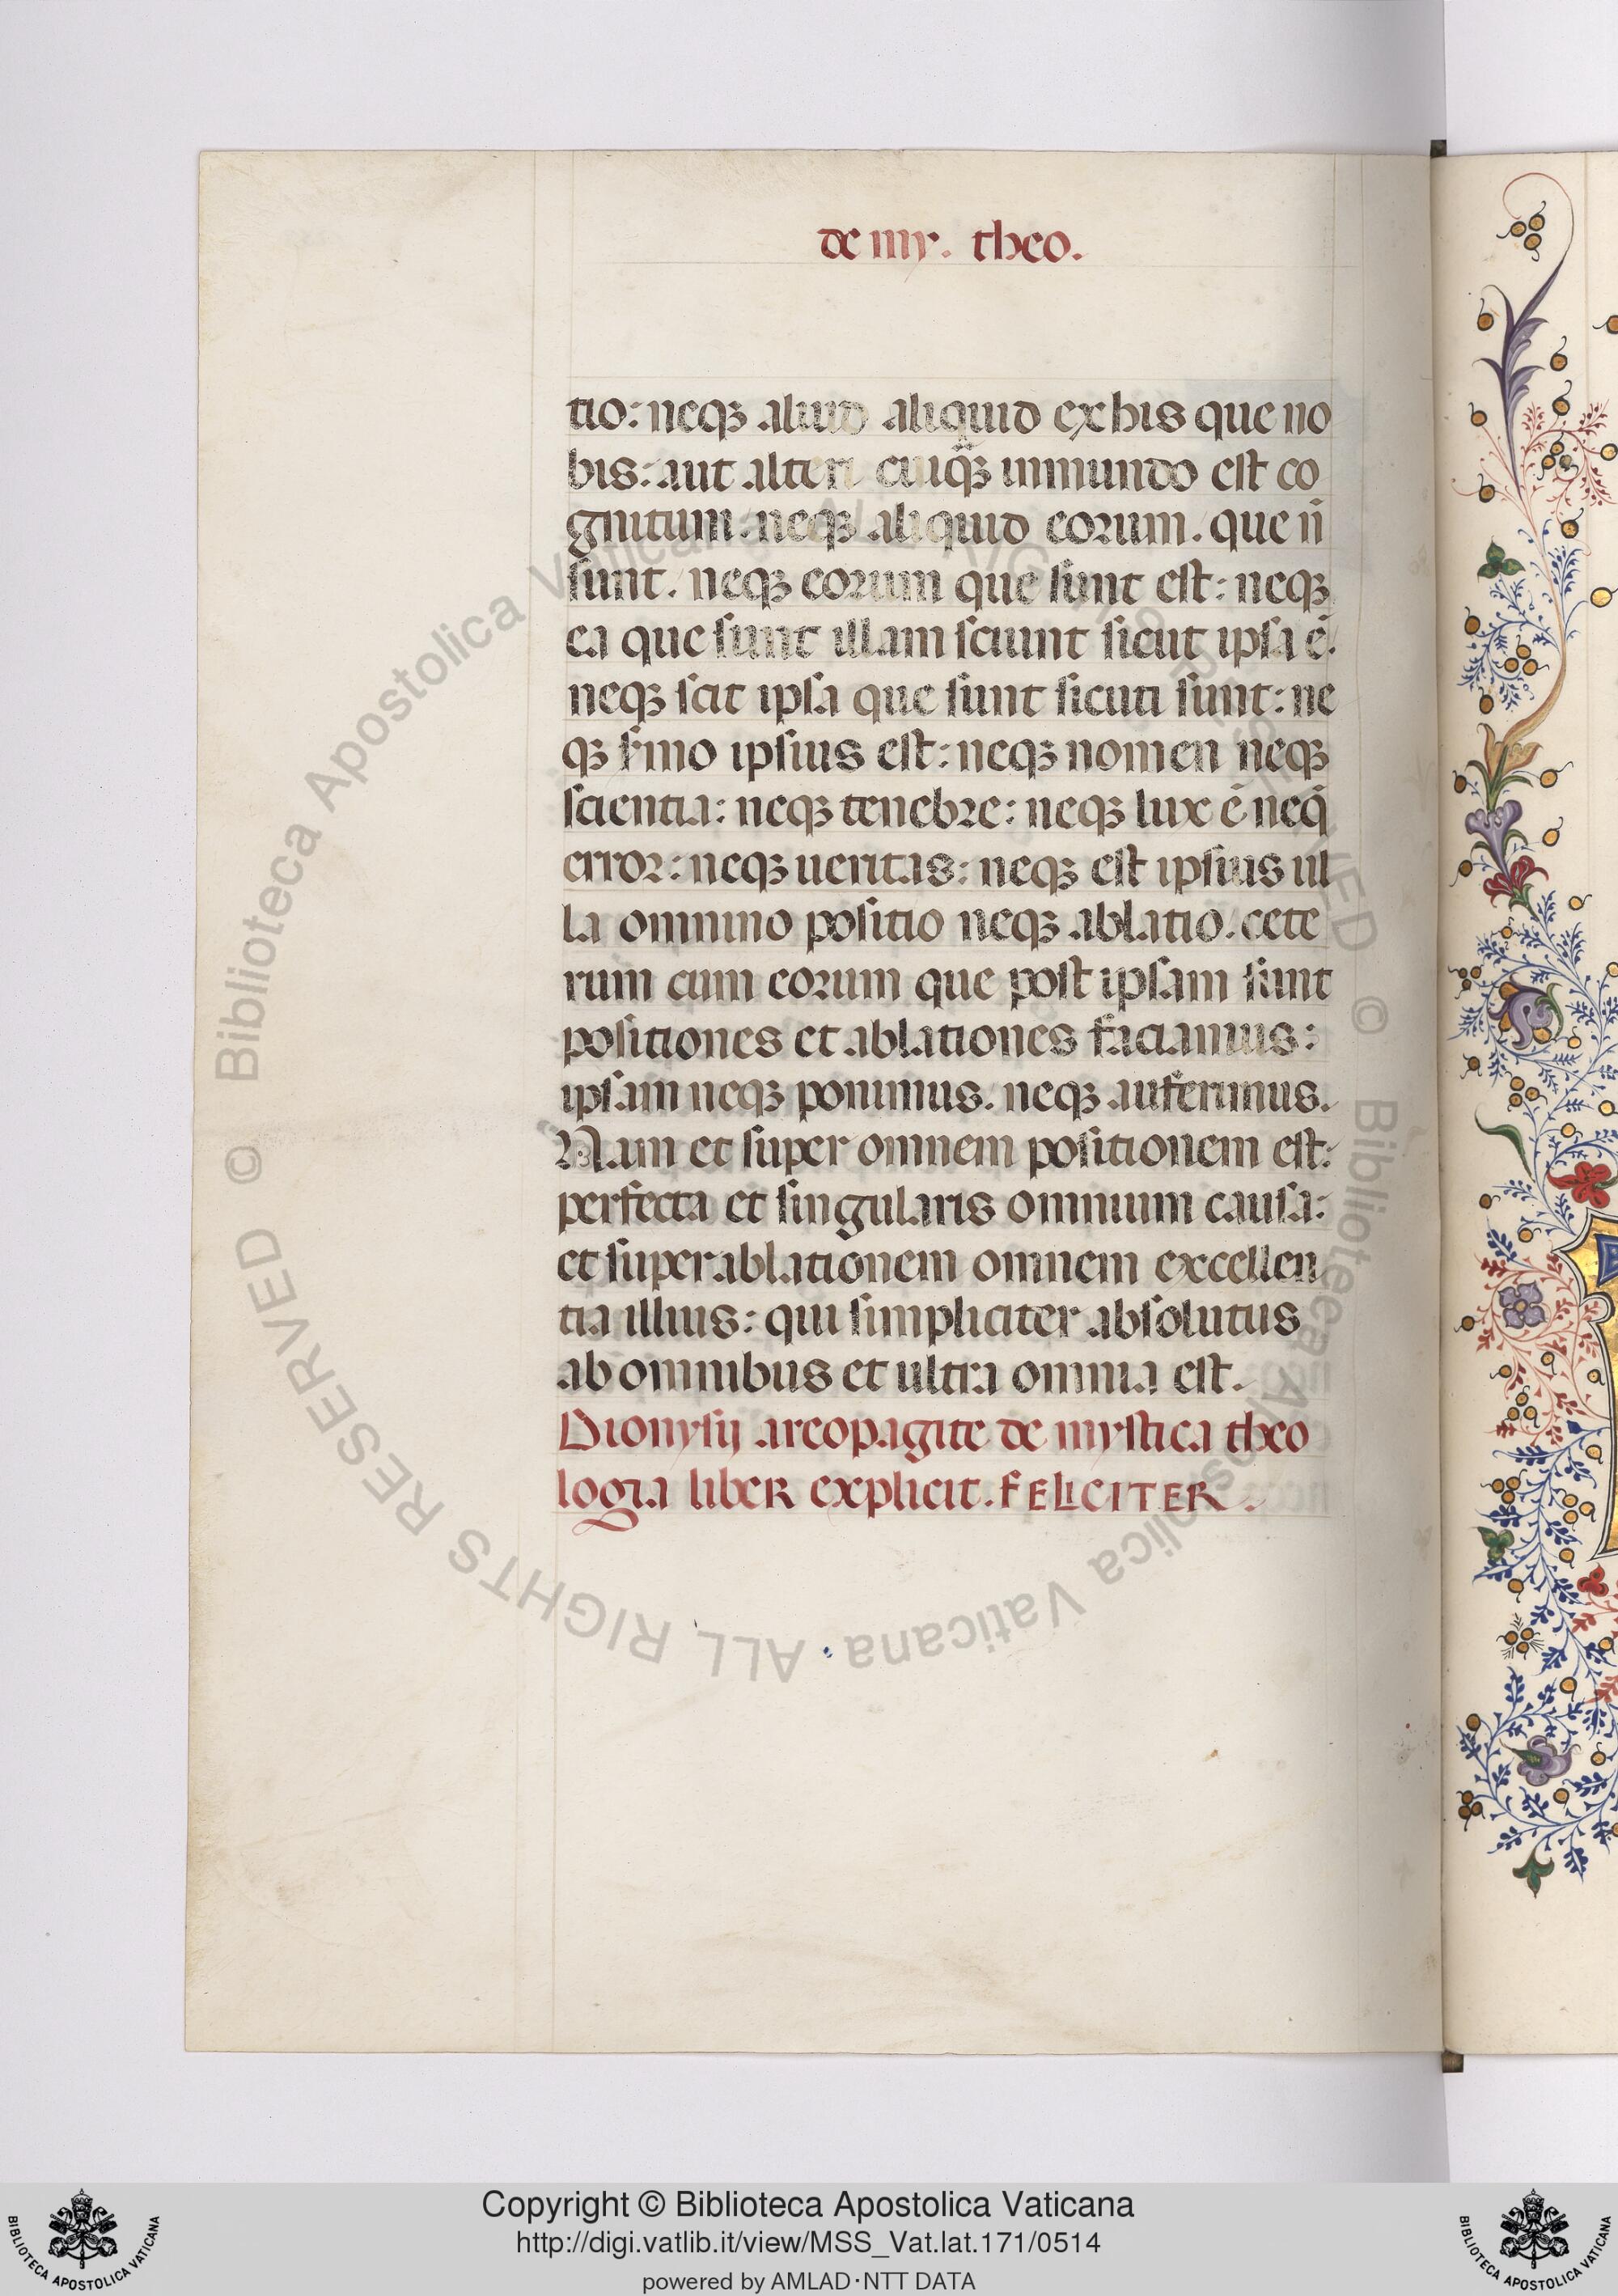 de my. theo.
tio: neqꝫ aliud aliquid ex his que no
bis: aut alteri cuiqꝫ in mundo est co
gnitum. neqꝫ aliquid eorum. que n̄
sunt. neqꝫ eorum que sunt est: neqꝫ
ea que sunt illam sciunt sicut ipsa ē.
neqꝫ scit ipsa que sunt sicuti sunt: ne
qꝫ s̄mo ipsius est: neqꝫ nomen neqꝫ
scientia: neqꝫ tenebre: neqꝫ lux ē neq̄
error: neqꝫ ueritas: neqꝫ est ipsius ul
la omnino positio neqꝫ ablatio. cete
rum cum eorum que post ipsam sunt
positiones et ablationes faciamus:
ipsam neqꝫ ponimus. neqꝫ auferimus.
Nam et super omnem positionem est:
perfecta et singularis omnium causa:
et super ablationem omnem excellen
tia illius: qui simpliciter absolutus
ab omnibus et ultra omnia est.
Dionysij areopagite de mystica theo
logia liber explicit. FELICITER.
© Biblioteca Apostolica Vaticana ALL RIGHTS RESERVED
© Biblioteca Apostolica Vaticana ALL RIGHTS RESERVED
Copyright © Biblioteca Apostolica Vaticana
http://digi.vatlib.it/view/MSS_Vat.lat.171/0514
powered by AMLAD·NTT DATA
BIBLIOTECA APOSTOLICA VATICANA
BIBLIOTECA APOSTOLICA VATICANA